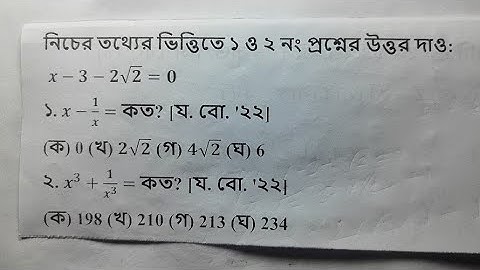 নিচের তথ্যের ভিত্তিতে ১ ও ২ নং প্রশ্নের উত্তর দাও:
x − 3 − 2√2 = 0
১. x − 1/x = কত? [য. বো. '২২]
(ক) 0 (খ) 2√2 (গ) 4√2 (ঘ) 6
২. x³ + 1/x³ = কত? [য. বো. '২২]
(ক) 198 (খ) 210 (গ) 213 (ঘ) 234